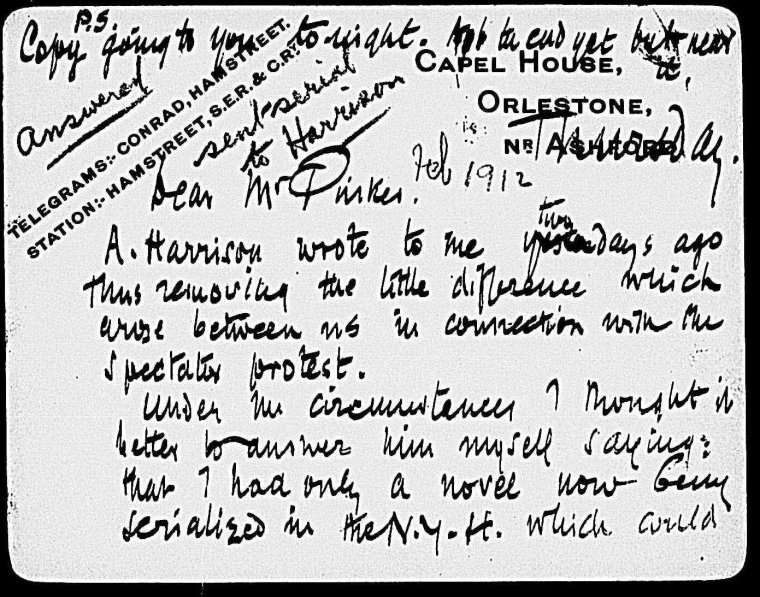 P.S.
Copy going to you to-night. Not the end yet but near it.
Answered
TELEGRAMS:- CONRAD, HAMSTREET.
STATION:- HAMSTREET, S.E.R. & C.R.
sent serial
to Harrison
CAPEL HOUSE,
ORLESTONE,
NR ASHFORD.
Thursday.
Feb 1912
Dear Mr Pinker.
A. Harrison wrote to me two days ago
thus removing the little difference which
arose between us in connection with the
Spectator protest.
Under the circumstances I thought it
better to answer him myself saying:
that I had only a novel now being
serialized in the N.Y.H. which could